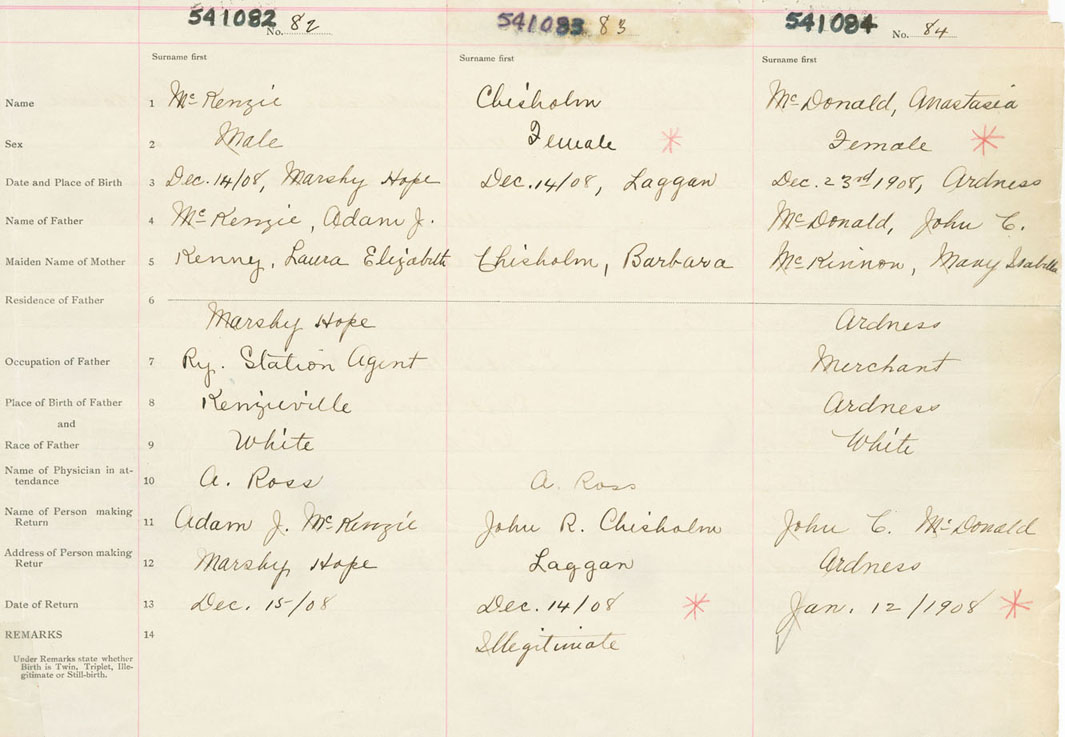 541082 No. 82 541083 83 541084 No. 84
Surname first Surname first Surname first
Name 1 McKenzie Chisholm McDonald, Anastasia
Sex 2 Male Female Female
Date and Place of Birth 3 Dec. 14/08, Marshy Hope Dec. 14/08, Laggan Dec. 23rd 1908, Ardness
Name of Father 4 McKenzie, Adam J. McDonald, John C.
Maiden Name of Mother 5 Kenny, Laura Elizabeth Chisholm, Barbara McKinnon, Mary Isabella
Residence of Father 6
Marshy Hope Ardness
Occupation of Father 7 Ry. Station Agent Merchant
Place of Birth of Father 8 Kenzieville Ardness
and
Race of Father 9 White White
Name of Physician in at-
tendance 10 A. Ross A. Ross
Name of Person making
Return 11 Adam J. McKenzie John R. Chisholm John C. McDonald
Address of Person making
Retur 12 Marshy Hope Laggan Ardness
Date of Return 13 Dec. 15/08 Dec. 14/08 Jan. 12/1908
REMARKS 14 Illegitimate
Under Remarks state whether
Birth is Twin, Triplet, Ille-
gitimate or Still-birth.